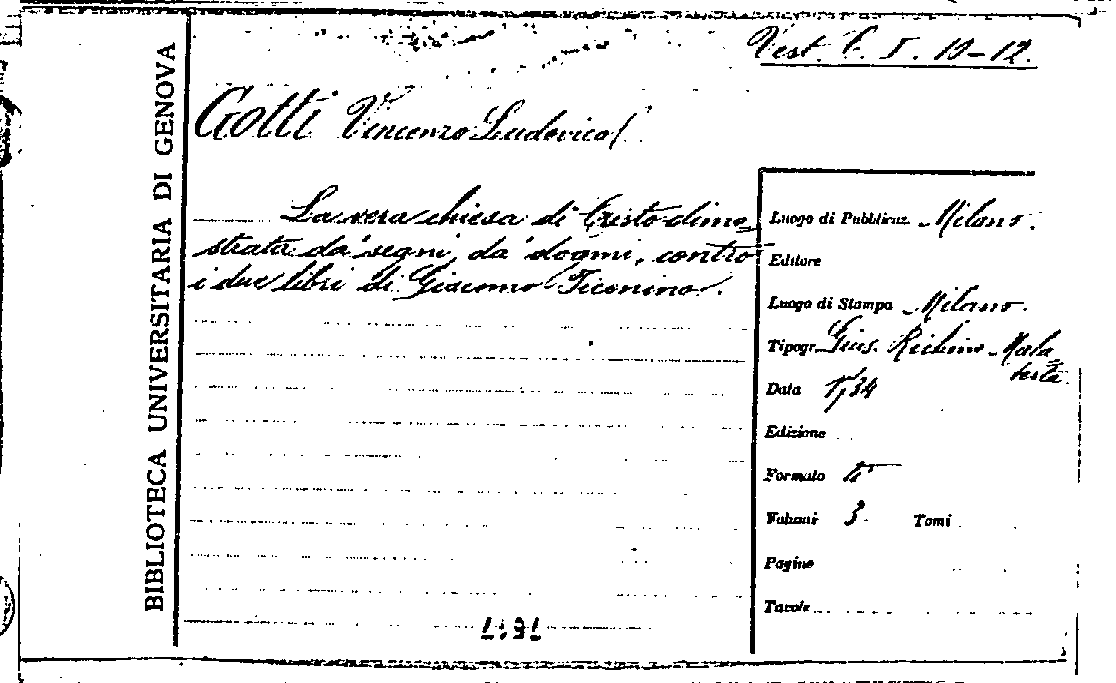 Vest. C. I. 10-12.
BIBLIOTECA UNIVERSITARIA DI GENOVA
Gotti Vincenzo Ludovico
La vera chiesa di Cristo dimo
strata da' segni, da' dogmi, contro
i due libri di Giacomo Picenino.
Luogo di Pubblicaz. Milano.
Editore
Luogo di Stampa Milano.
Tipogr. Gius. Richino-Mala
testa
Data 1734
Edizione
Formato 4°
Volumi 3 Tomi
Pagine
Tavole